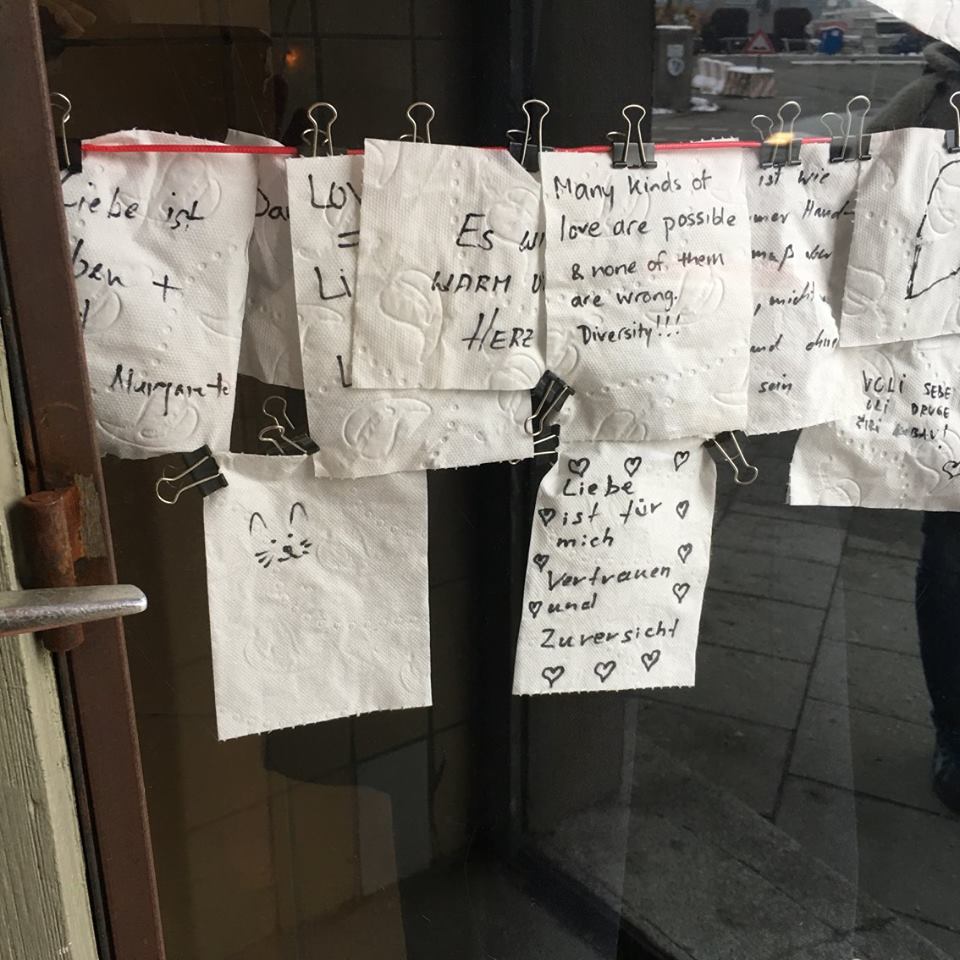 Liebe ist
ben +
Margarete
Da
LOV
=
Li
L
Es wi
WARM U
HERZ
Many kinds of
love are possible
& none of them
are wrong.
Diversity!!!
ist wie
mer Hand-
maß über
, nicht
und ohne
sein
VOLI SEBE
DRUGE
♡ ♡ ♡
Liebe
♡ ist für ♡
mich
♡ ♡
Vertrauen
♡ und ♡
Zuversicht
♡ ♡ ♡